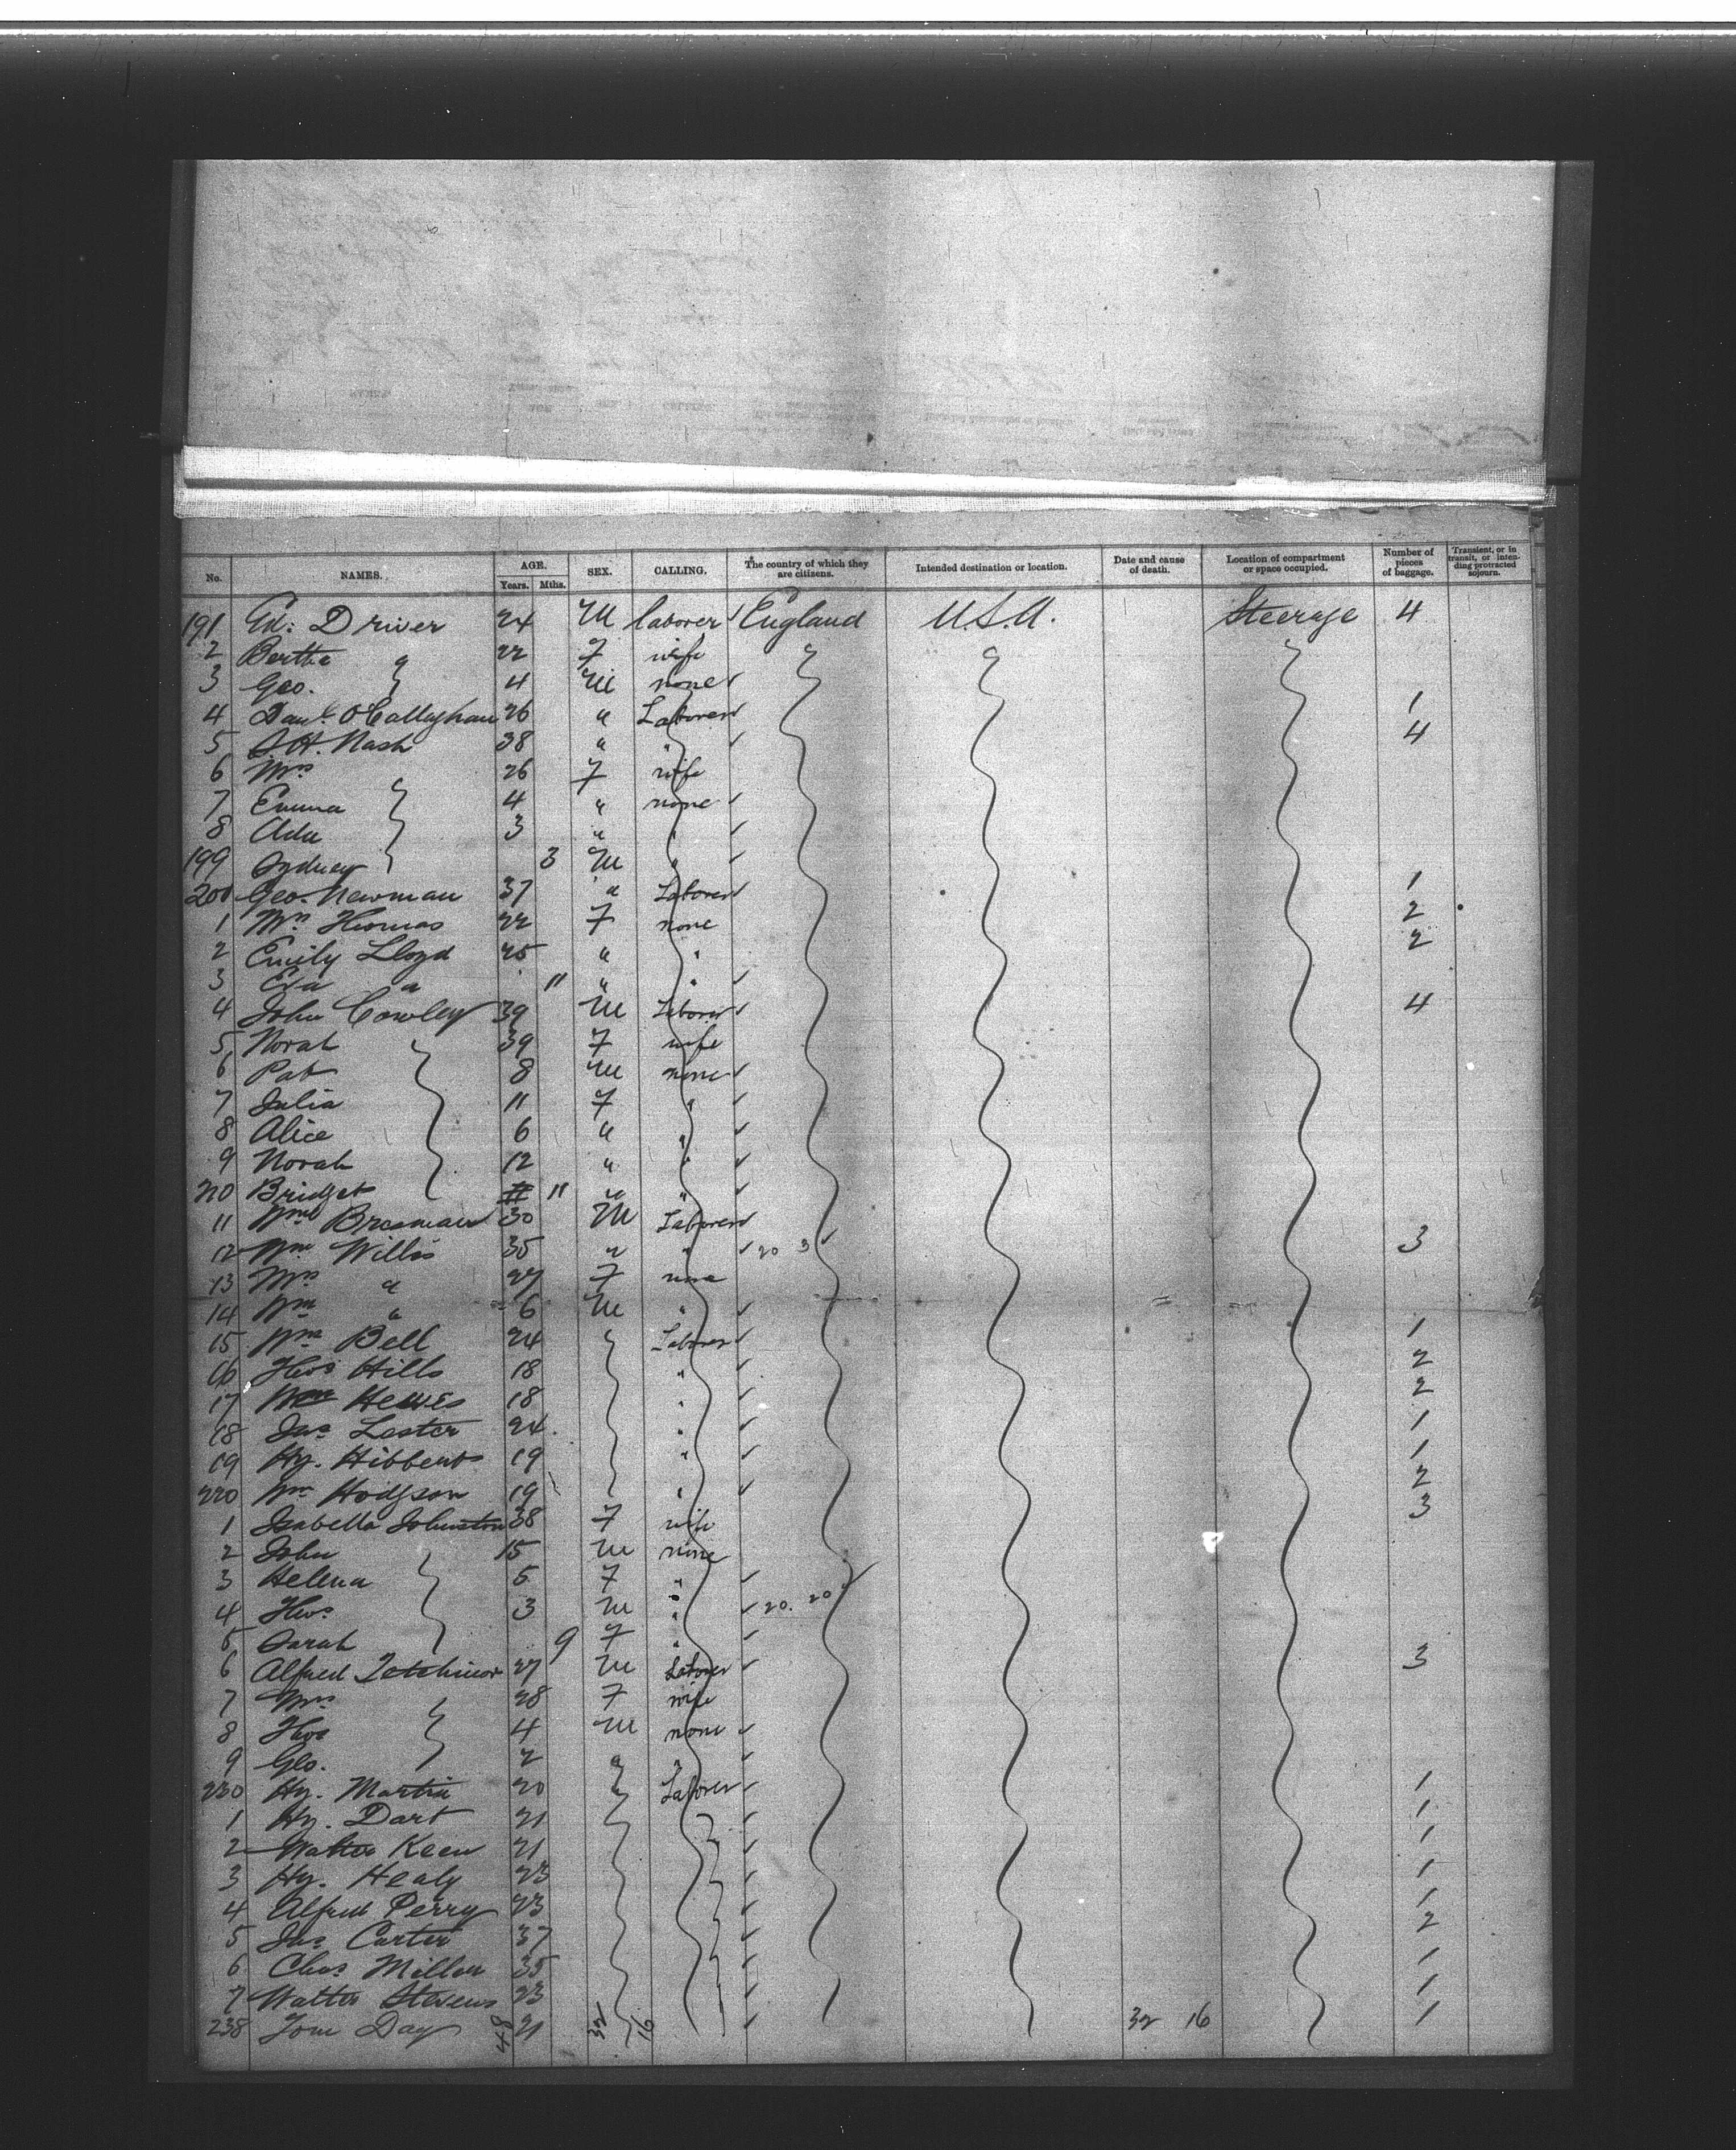 No. NAMES. AGE. Years. Mths. SEX. CALLING. The country of which they are citizens. Intended destination or location. Date and cause of death. Location of compartment or space occupied. Number of pieces of baggage. Transient, or in transit, or intending protracted sojourn.
191 Ed: Driver 24 M laborer England U.S.A. Steerage 4
2 Bertha " 22 F wife
3 Geo. 4 M none
4 Danl. O'Callaghan 26 " Laborer 1
5 J H. Nash 38 " " 4
6 Mrs 26 F wife
7 Emma 4 " none
8 Ada 3 " "
199 Sydney 3 M "
200 Geo. Newman 37 " Laborer 1
1 Mrs Thomas 22 F none 2
2 Emily Lloyd 25 " " 2
3 Eva " 11 " "
4 John Cowley 39 M Laborer 4
5 Norah 39 F wife
6 Pat 8 M none
7 Julia 11 F "
8 Alice 6 " "
9 Norah 12 " "
210 Bridget 11 " "
11 Bresman 30 M Laborer
12 Wm Willis 35 " " 20 3 3
13 Mrs " 27 F none
14 Wm " 6 M "
15 Wm Bell 24 Laborer 1
16 Thos Hills 18 " 2
17 Wm Hewes 18 " 2
18 Jas Lester 24 " 1
19 Hy. Hibbert 19 " 1
220 Wm Hodgson 19 " 2
1 Isabella Johnston 38 F wife 3
2 John 15 M none
3 Helena 5 F "
4 Thos 3 M " 20. 20
5 Sarah 9 F "
6 Alfred 27 M Laborer 3
7 Mrs 28 F wife
8 Thos 4 M none
9 Geo. 2 " "
230 Hy. Martin 20 " Laborer 1
1 Hy. Dart 21 1
2 Walter Keen 21 1
3 Hy. Healy 23 1
4 Alfred Perry 23 1
5 Jas Carter 37 2
6 Chas Miller 35 1
7 Walter Stevens 23 1
238 Tom Day 48 21 32 16 32 16 1